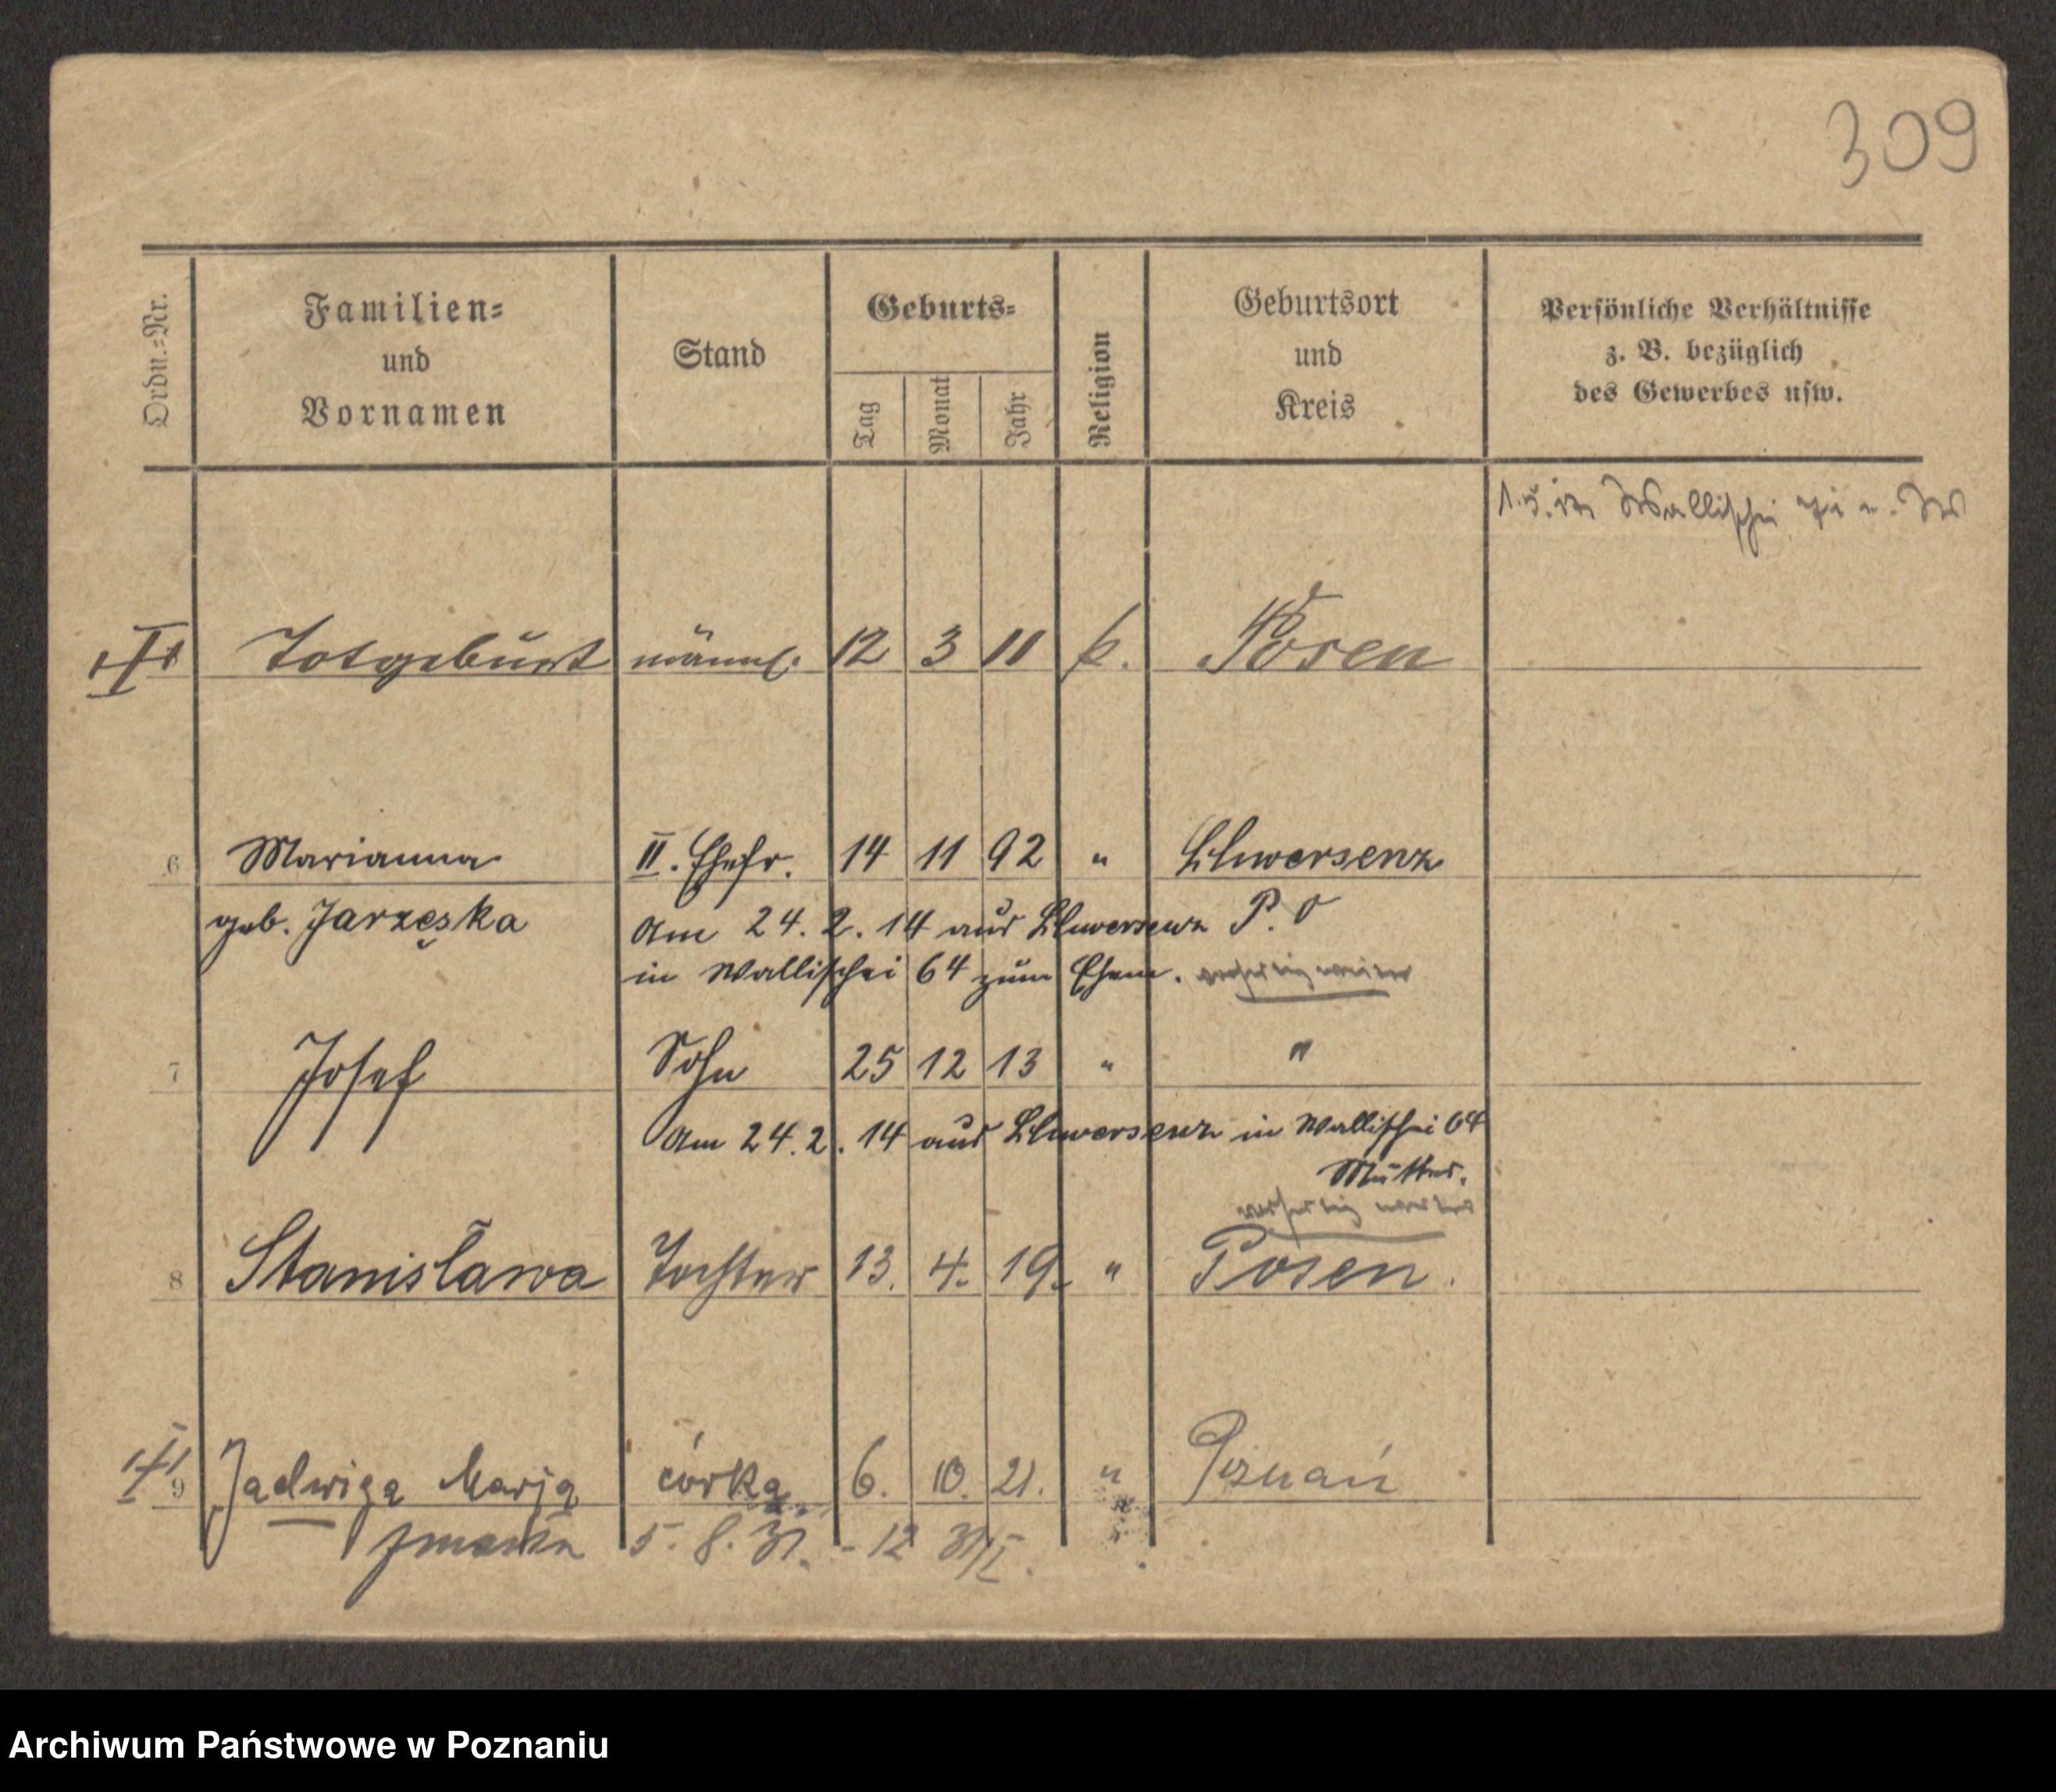 309
Ordn.-Nr.
Familien-
und
Vornamen
Stand
Geburts-
Tag
Monat
Jahr
Religion
Geburtsort
und
Kreis
Persönliche Verhältnisse
z. B. bezüglich
des Gewerbes usw.
Wallischei
Totgeburt männl. 12 3 11 k. Posen
6 Marianna II. Ehefr. 14 11 92 " Schwersenz
geb. Jarzęska
Am 24. 2. 14 aus Schwersenz P. O
in Wallischei 64 zum Ehem.
7 Josef Sohn 25 12 13 " "
Am 24. 2. 14 aus Schwersenz in Wallischei 64
Mutter.
8 Stanisława Tochter 13. 4. 19. " Posen.
9 Jadwiga Marja córka 6. 10. 21. " Poznań
zmarła 5. 8. 31. - 12
Archiwum Państwowe w Poznaniu